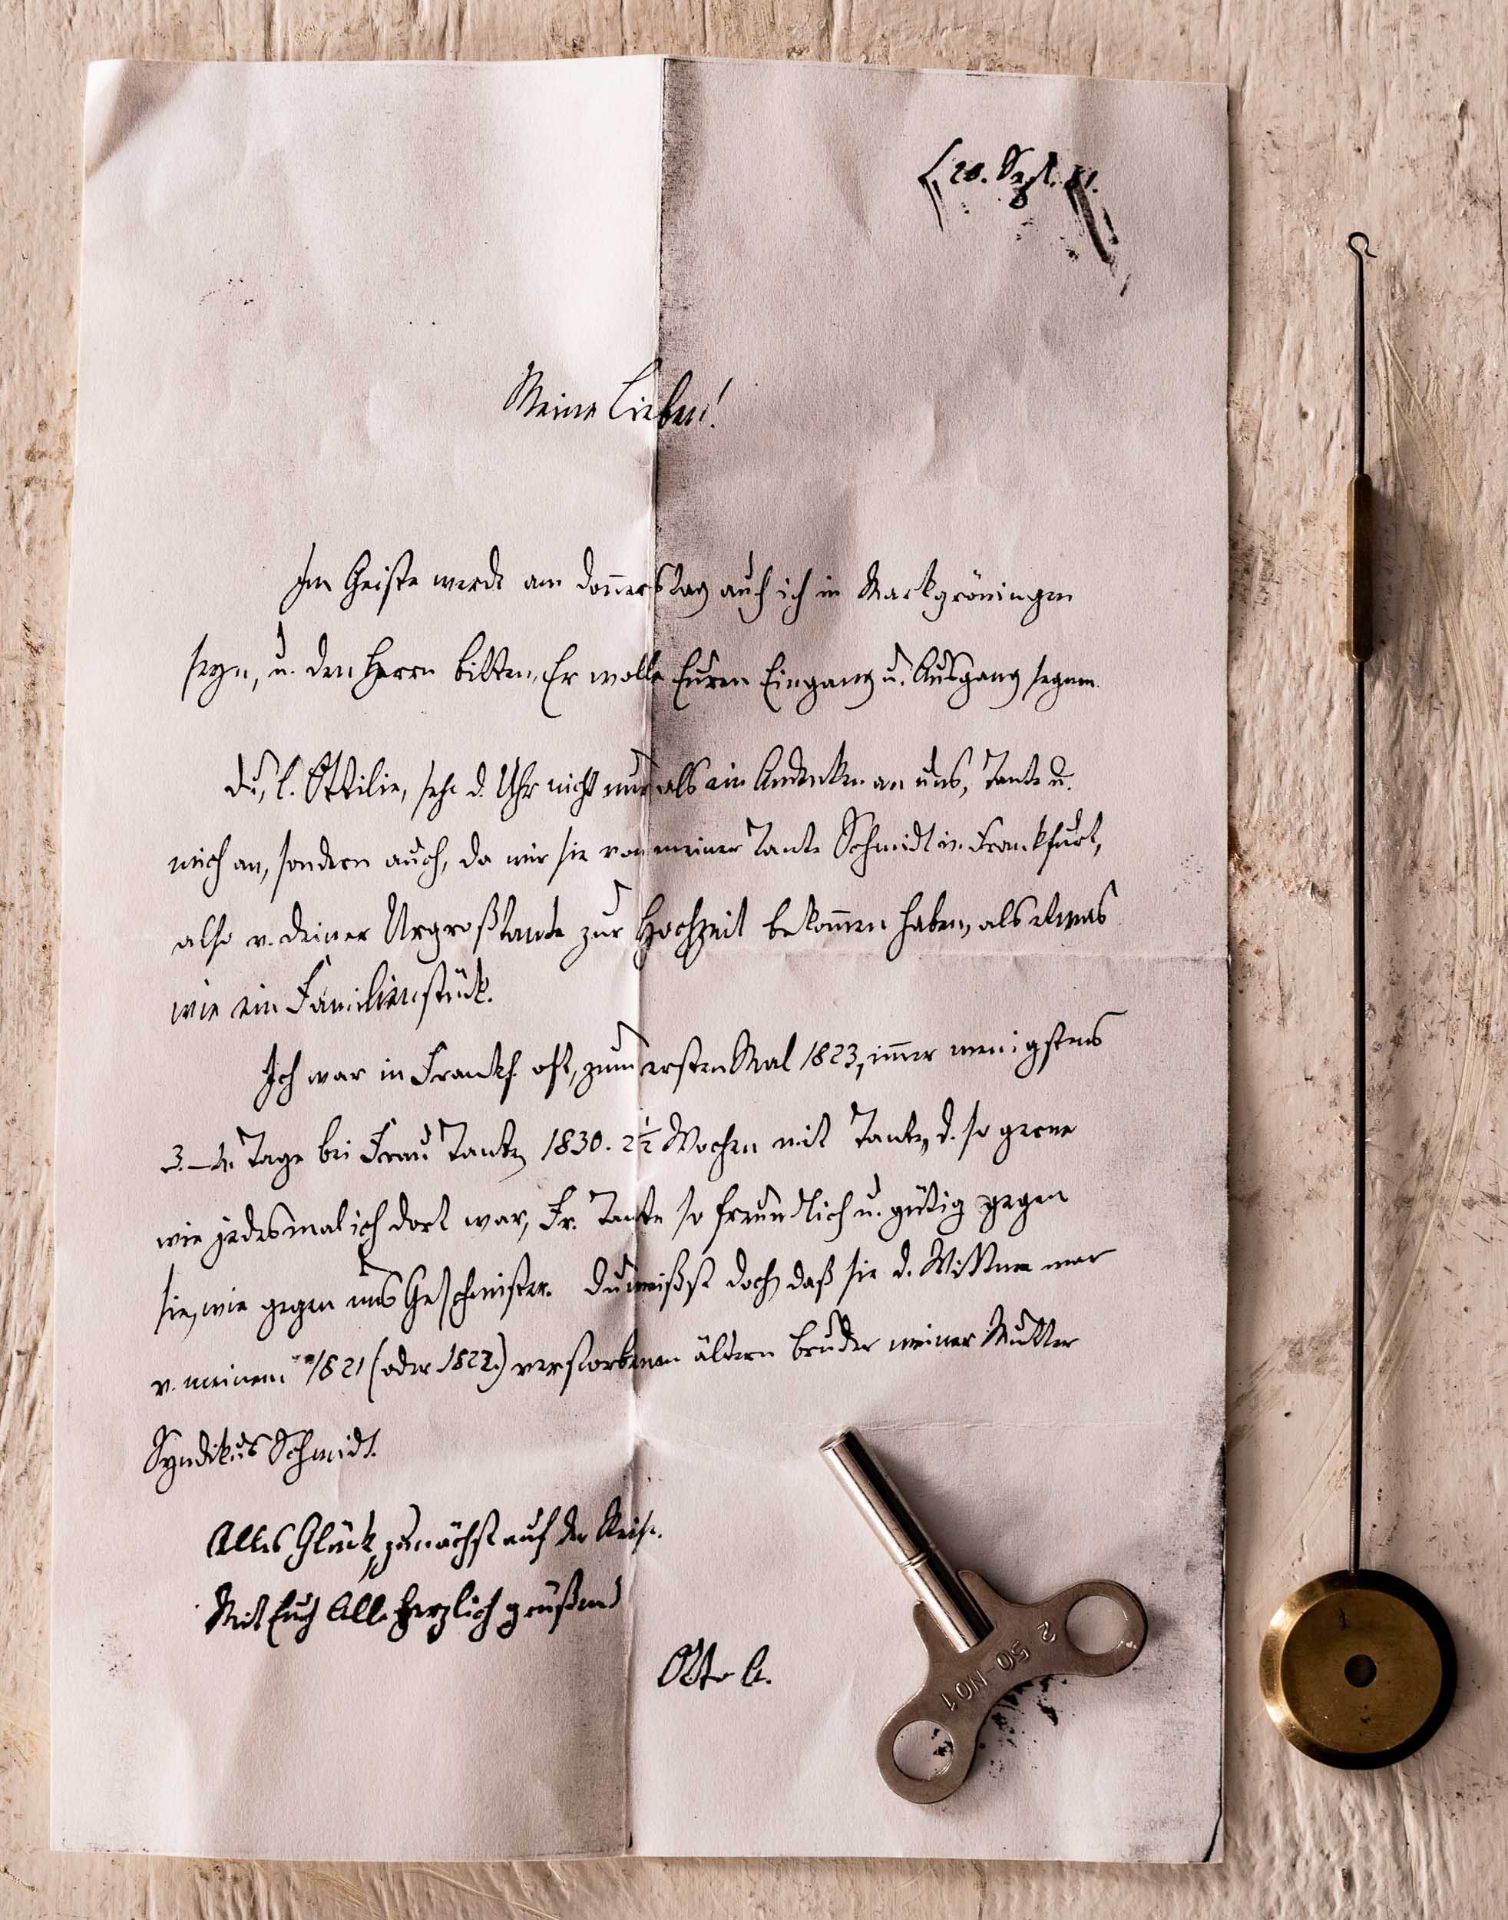 20. Sept. 81.
Meine Lieben!
Im Geiste werde am Donnerstag auch ich in Markgröningen
seyn, u. den Herrn bitten, Er wolle Euren Eingang u. Ausgang segnen.
Du, l. Ottilie, sehe d. Uhr nicht nur als ein Andenken an uns, Tante u.
mich an, sondern auch, da wir sie von meiner Tante Schmidt in Frankfurt,
also v. deiner Urgroßtante zur Hochzeit bekom̅en haben, als etwas
wie ein Familienstück.
Ich war in Frankf. oft, zum ersten Mal 1823, im̅er wenigstens
3.–4. Tage bei Frau Tante, 1830. 2½ Wochen mit Tante, d. so gerne
wie jedesmal ich dort war, Fr. Tante so freundlich u. gütig gegen
sie, wie gegen uns Geschwister. Du weißst doch, daß sie d. Wittwe war
v. meinem 1821 (oder 1822.) verstorbenen ältern Bruder meiner Mutter
Syndikus Schmidt.
Alles Glück, zunächst auf der Reise.
Mit Euch Alle herzlich grüßend
Otto
2 50-NO1
1